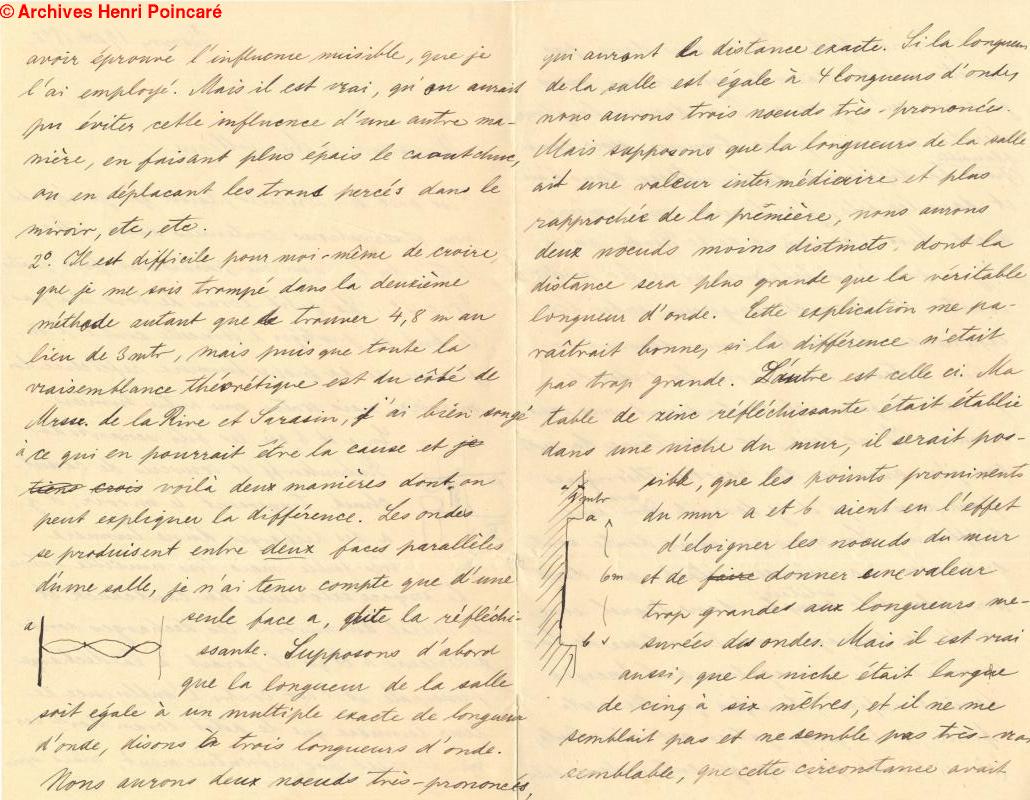 © Archives Henri Poincaré
avoir éprouvé l'influence nuisible, que je
l'ai employé. Mais il est vrai, qu'on aurait
pu éviter cette influence d'une autre ma-
nière, en faisant plus épais le caoutchuc,
ou en déplacant les trous percés dans le
miroir, etc, etc.
2°. Il est difficile pour moi-même de croire
que je me sois trompé dans la deuxième
méthode autant que de trouver 4,8 m au
lieu de 3 mtr, mais puisque toute la
vraisemblance théorétique est du côté de
Mrss. de la Rive et Sarasin, j'ai bien songé
à ce qui en pourrait être la cause et je
tiens crois voilà deux manières dont on
peut expliquer la différence. Les ondes
se produisent entre deux faces parallèles
d'une salle, je n'ai tenu compte que d'une
seule face a, dite la réfléchi-
ssante. Supposons d'abord
que la longueur de la salle
soit égale à un multiple exacte de longueur
d'onde, disons à trois longueurs d'onde.
Nous aurons deux noeuds très-prononcés,
a
qui auront la distance exacte. Si la longueur
de la salle est égale à 4 longueurs d'onde,
nous aurons trois noeuds très-prononcés.
Mais supposons que la longueurs de la salle
ait une valeur intermédiaire et plus
rapprochée de la prémière, nous aurons
deux noeuds moins distincts, dont la
distance sera plus grande que la véritable
longueur d'onde. Cette explication me pa-
raîtrait bonne, si la différence n'était
pas trop grande. L'autre est celle ci. Ma
table de zinc réfléchissante était établie
dans une niche du mur, il serait pos-
sible, que les points prominents
du mur a et b aient eu l'effet
d'éloigner les noeuds du mur
et de faire donner une valeur
trop grandes aux longueurs me-
surées des ondes. Mais il est vrai
aussi, que la niche était large
de cinq à six mètres, et il ne me
semblait pas et ne semble pas très-vrai
semblable, que cette circonstance avait
mtr
a
6m
b